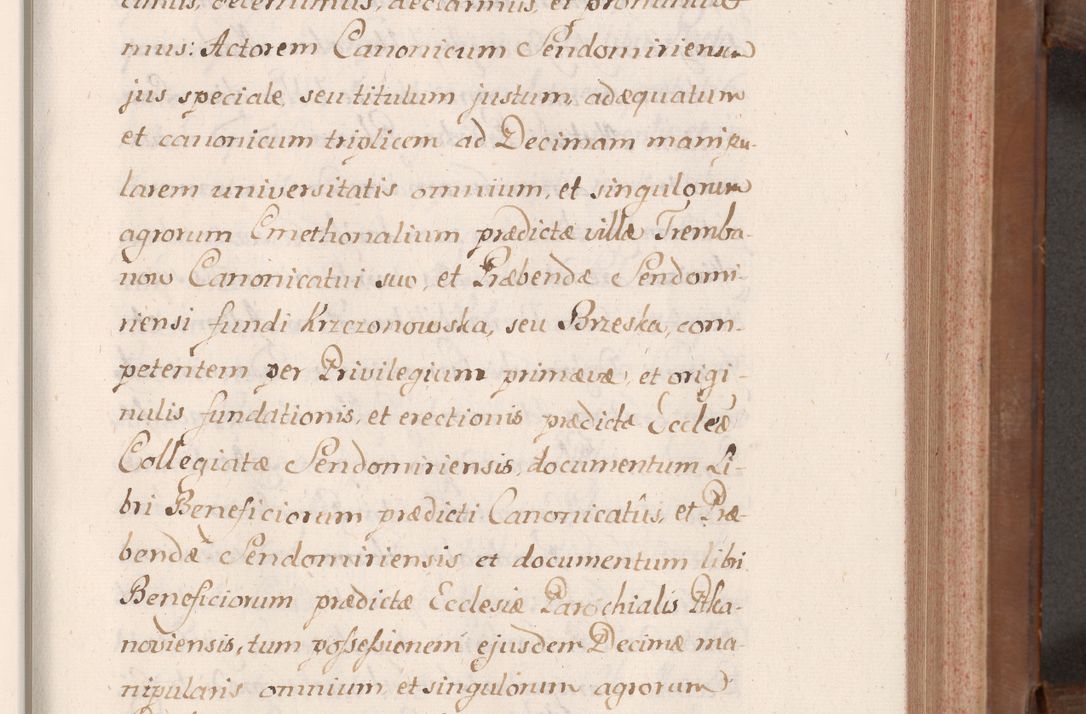 cimus, determimus, declaramus, et pronuntia-
mus: Actorem Canonicum Sendomiriensem
jus speciale, seu titulum justum, adæquatum
et canonicum triplicem ad Decimam manipu-
larem universitatis omnium, et singulorum
agrorum Cmethonalium prædictæ villæ Tremba-
now Canonicatui suo, et Præbendæ Sendomi-
riensi fundi Krzczonowska, seu Brzeska, com-
petentem per Privilegium primævæ, et origi-
nalis fundationis, et erectionis prædictæ Eccleæ
Collegiatæ Sendomiriensis, documentum Li-
bri Beneficiorum prædicti Canonicatûs, et Præ-
bendæ Sendomiriensis et documentum libri
Beneficiorum prædictæ Ecclesiæ Parochialis Ptka-
noviensis, tum possessionem ejusdem Decimæ ma-
nipularis omnium, et singulorum agrorum